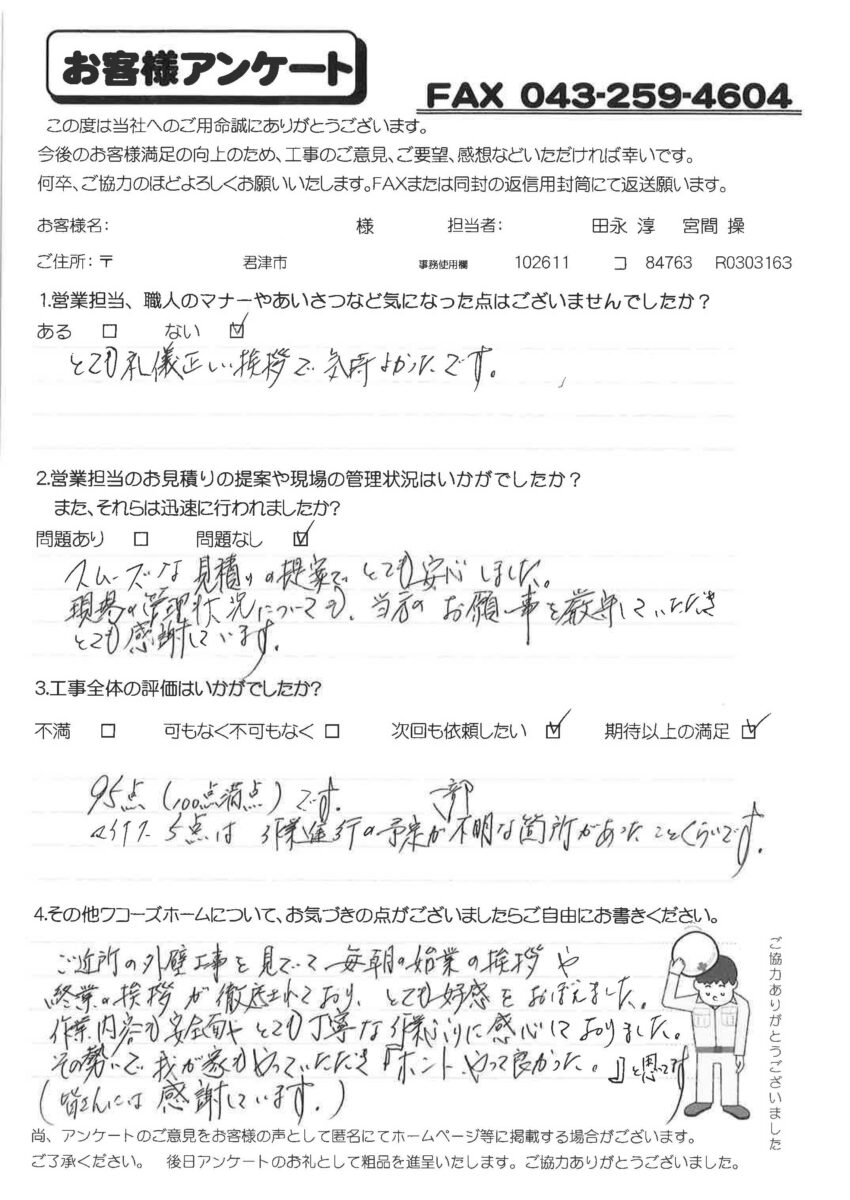 お客様アンケート
FAX 043-259-4604
この度は当社へのご用命誠にありがとうございます。
今後のお客様満足の向上のため、工事のご意見、ご要望、感想などいただければ幸いです。
何卒、ご協力のほどよろしくお願いいたします。FAXまたは同封の返信用封筒にて返送願います。
お客様名: 様 担当者: 田永 淳 宮間 操
ご住所:〒 君津市 事務使用欄 102611 コ 84763 R0303163
1.営業担当、職人のマナーやあいさつなど気になった点はございませんでしたか?
ある □ ない ☑
とても礼儀正しい挨拶で気持よかったです。
2.営業担当のお見積りの提案や現場の管理状況はいかがでしたか?
また、それらは迅速に行われましたか?
問題あり □ 問題なし ☑
スムーズな見積りの提案でとても安心しました。
現場の管理状況についても、当方のお願い事を厳守していただき
とても感謝しています。
3.工事全体の評価はいかがでしたか?
不満 □ 可もなく不可もなく □ 次回も依頼したい ☑ 期待以上の満足 ☑
95点(100点満点)です。
マイナス5点は作業進行の予定が一部不明な箇所があったことくらいです。
4.その他ワコーズホームについて、お気づきの点がございましたらご自由にお書きください。
ご近所の外壁工事を見ていて毎朝の始業の挨拶や
終業の挨拶が徹底されており、とても好感をおぼえました。
作業内容も安全面やとても丁寧な作業ぶりに感心しておりました。
その勢いで我が家もやっていただき『ホントやって良かった。』と思ってます
(皆さんには感謝しています。)
ご協力ありがとうございました
尚、アンケートのご意見をお客様の声として匿名にてホームページ等に掲載する場合がございます。
ご了承ください。 後日アンケートのお礼として粗品を進呈いたします。ご協力ありがとうございました。